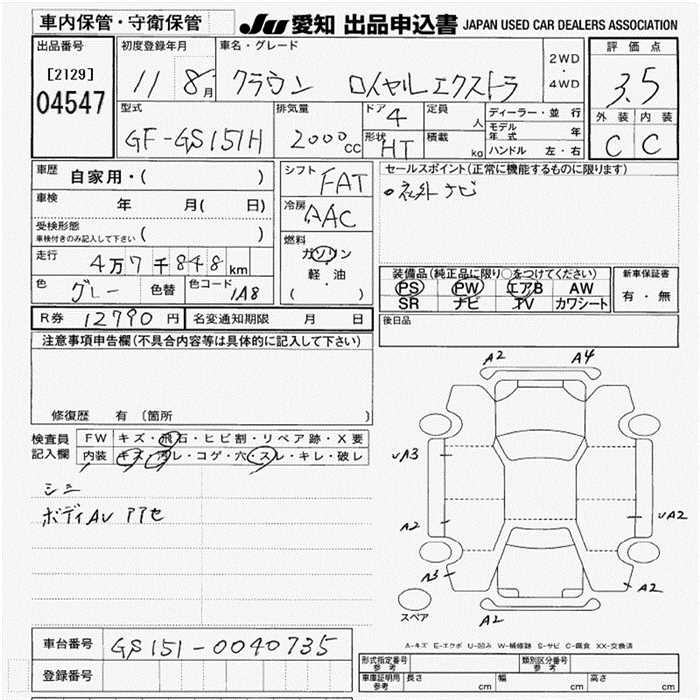 車内保管・守衛保管 JU 愛知 出品申込書 JAPAN USED CAR DEALERS ASSOCIATION
出品番号 初度登録年月 車名・グレード 2WD・4WD 評価点
[2129] 11 8月 クラウン ロイヤルエクストラ 3.5
04547
型式 排気量 ドア 4 定員 人 ディーラー・並行 外装 内装
GF-GS151H 2000cc 形状 HT 積載 kg モデル年式 年 C C
ハンドル 左・右
車歴 自家用・( ) シフト FAT セールスポイント(正常に機能するものに限ります)
車検 年 月( 日) 冷房 AAC ○社外ナビ
受検形態 ( )
車検付きのみ記入して下さい
走行 4万7千848km 燃料 ガソリン・軽油 ( )
色 グレー 色替 色コード 1A8
装備品(純正品に限り○をつけてください) 新車保証書
PS PW エアB AW 有・無
SR ナビ TV カワシート
R券 12790円 名変通知期限 月 日 後日品
注意事項申告欄(不具合内容等は具体的に記入して下さい)
修復歴 有 〔箇所 〕
検査員 FW キズ・飛石・ヒビ割・リペア跡・X要
記入欄 内装 キズ・汚レ・コゲ・穴・スレ・キレ・破レ
シミ
ボディAU アアセ
A2 A4
UA3
A2 UA2
A3 A2
スペア A2
A-キズ E-エクボ U-凹み W-補修跡 S-サビ C-腐食 XX-交換済
車台番号 GS151-0040735
登録番号
形式指定番号 参考 類別区分番号 参考
車庫証明用 参考 長さ cm 幅 cm 高さ cm